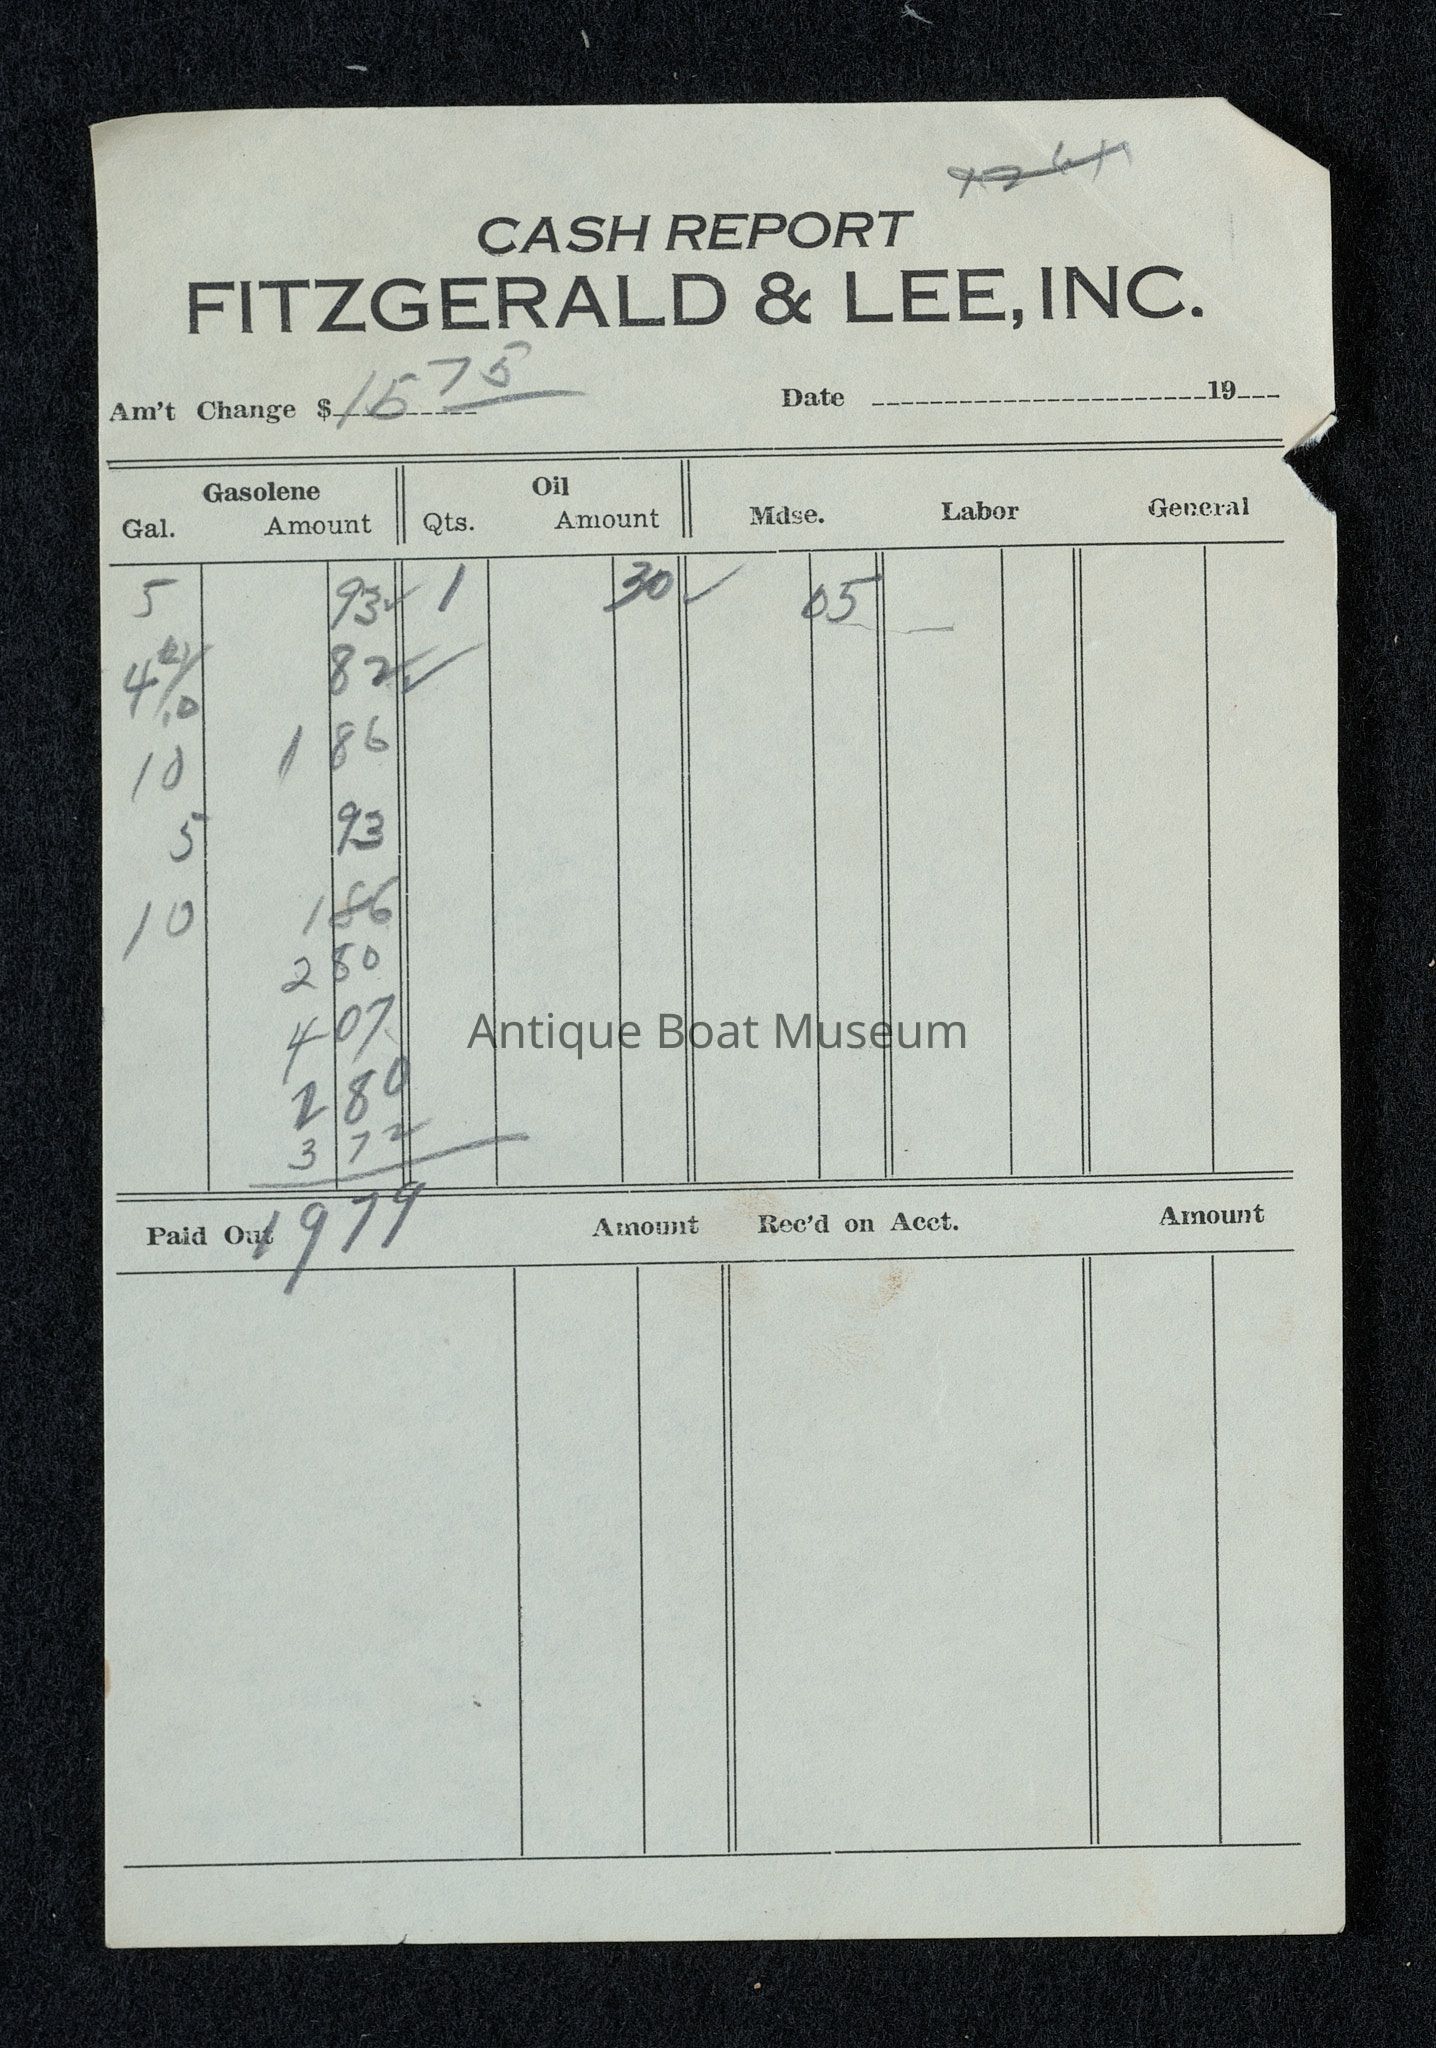 CASH REPORT
FITZGERALD & LEE, INC.
Am't Change $ 15 75 Date 19
Gasolene Oil
Gal. Amount Qts. Amount Mdse. Labor General
5 93 ✓ 1 30 ✓ 05
4 /10 82 ✓
10 1 86
5 93
10 1 86
2 80
4 07
Antique Boat Museum
2 80
3 72
1979
Paid Out Amount Rec'd on Acct. Amount